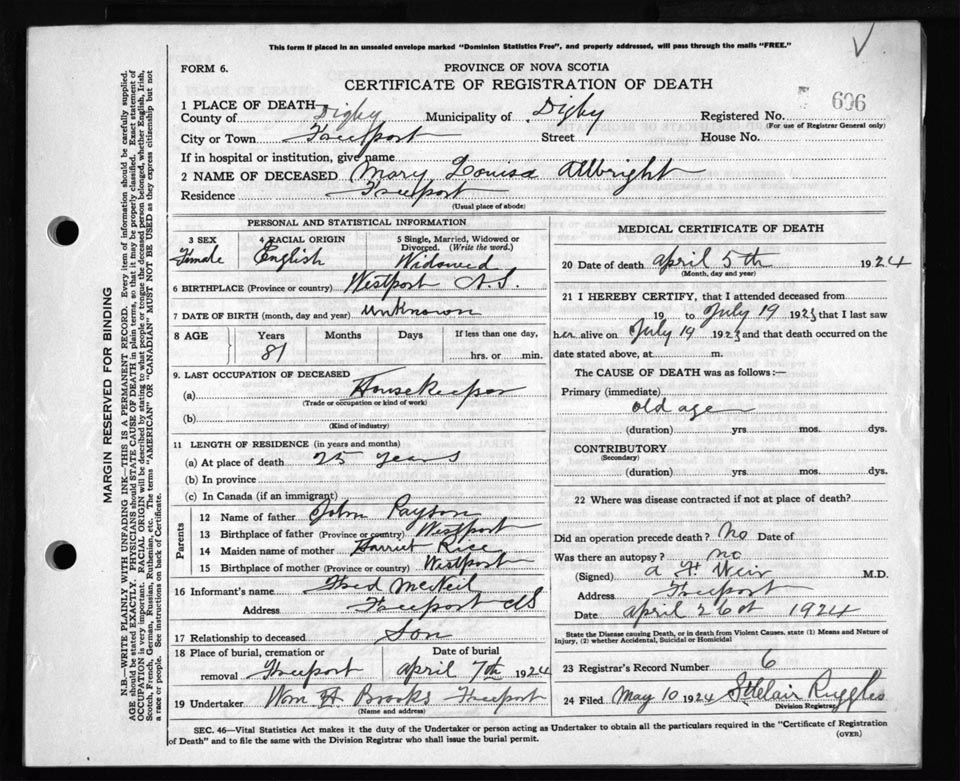 This form if placed in an unsealed envelope marked "Dominion Statistics Free", and properly addressed, will pass through the mails "FREE."
FORM 6.
PROVINCE OF NOVA SCOTIA
CERTIFICATE OF REGISTRATION OF DEATH
606
1 PLACE OF DEATH—
County of Digby Municipality of Digby Registered No.
(For use of Registrar General only)
City or Town Freeport Street House No.
If in hospital or institution, give name
2 NAME OF DECEASED Mary Louisa Allbright
Residence Freeport
(Usual place of abode)
PERSONAL AND STATISTICAL INFORMATION
3 SEX 4 RACIAL ORIGIN 5 Single, Married, Widowed or Divorced. (Write the word.)
Female English Widowed
6 BIRTHPLACE (Province or country) Westport N.S.
7 DATE OF BIRTH (month, day and year) unknown
8 AGE Years Months Days If less than one day,
81 hrs. or min.
9. LAST OCCUPATION OF DECEASED
(a) Housekeeper
(Trade or occupation or kind of work)
(b)
(Kind of industry)
11 LENGTH OF RESIDENCE (in years and months)
(a) At place of death 25 years
(b) In province
(c) In Canada (if an immigrant)
Parents
12 Name of father John Payson
13 Birthplace of father (Province or country) Westport
14 Maiden name of mother Harriet Rice
15 Birthplace of mother (Province or country) Westport
16 Informant's name Fred McNeil
Address Freeport NS
17 Relationship to deceased Son
18 Place of burial, cremation or removal Date of burial
Freeport April 7th 1924
19 Undertaker Wm H Brooks Freeport
(Name and address)
MEDICAL CERTIFICATE OF DEATH
20 Date of death April 5th 1924
(Month, day and year)
21 I HEREBY CERTIFY, that I attended deceased from
19 to July 19 1923 that I last saw
her alive on July 19 1923 and that death occurred on
date stated above, at m.
The CAUSE OF DEATH was as follows:—
Primary (immediate)
old age
(duration) yrs. mos. dys.
CONTRIBUTORY
(Secondary)
(duration) yrs. mos. dys.
22 Where was disease contracted if not at place of death?
Did an operation precede death? No Date of
Was there an autopsy? no
(Signed) A H Weir M.D.
Address Freeport
Date April 26 1924
State the Disease causing Death, or in death from Violent Causes, state (1) Means and Nature of
Injury, (2) whether Accidental, Suicidal or Homicidal
23 Registrar's Record Number 6
24 Filed May 10 1924 St Clair Ruggles
Division Registrar
SEC. 46—Vital Statistics Act makes it the duty of the Undertaker or person acting as Undertaker to obtain all the particulars required in the "Certificate of Registration
of Death" and to file the same with the Division Registrar who shall issue the burial permit.
(OVER)
MARGIN RESERVED FOR BINDING
N.B.—WRITE PLAINLY WITH UNFADING INK—THIS IS A PERMANENT RECORD. Every item of information should be carefully supplied.
AGE should be stated EXACTLY. PHYSICIANS should STATE CAUSE OF DEATH in plain terms, so that it may be properly classified. Exact statement of
OCCUPATION is very important. RACIAL ORIGIN will be described by stating to what people or tongue the deceased person belonged, whether English, Irish,
Scotch, French, German, Russian, Ruthenian, etc. The terms "AMERICAN" OR "CANADIAN" MUST NOT BE USED as they express citizenship but not
a race or people. See instructions on back of Certificate.